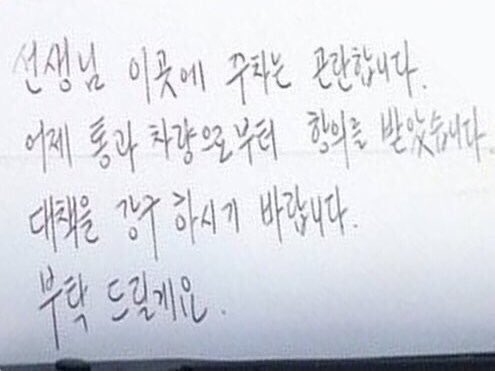 선생님 이곳에 주차는 곤란합니다.
어제 통과 차량으로부터 항의를 받았습니다
대책을 강구 하시기 바랍니다.
부탁 드릴게요.